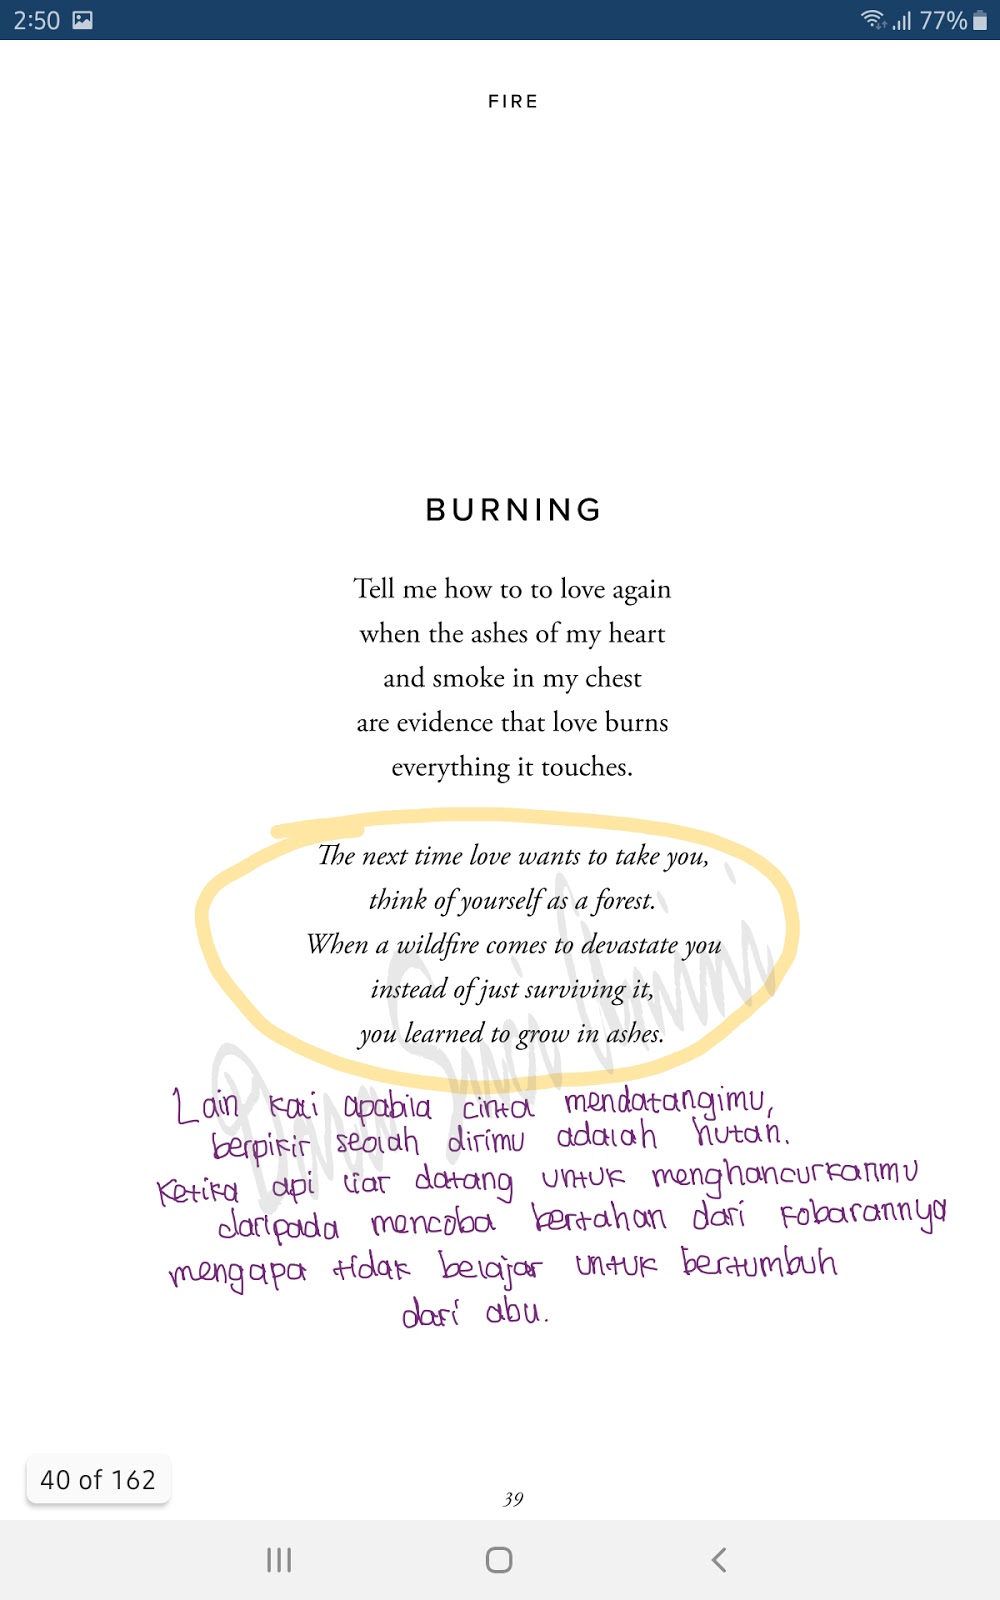 2:50
77%
FIRE
BURNING
Tell me how to to love again
when the ashes of my heart
and smoke in my chest
are evidence that love burns
everything it touches.
The next time love wants to take you,
think of yourself as a forest.
When a wildfire comes to devastate you
instead of just surviving it,
you learned to grow in ashes.
Lain kali apabila cinta mendatangimu,
berpikir seolah dirimu adalah hutan.
Ketika api liar datang untuk menghancurkanmu
daripada mencoba bertahan dari kobarannya
mengapa tidak belajar untuk bertumbuh
dari abu.
40 of 162
39